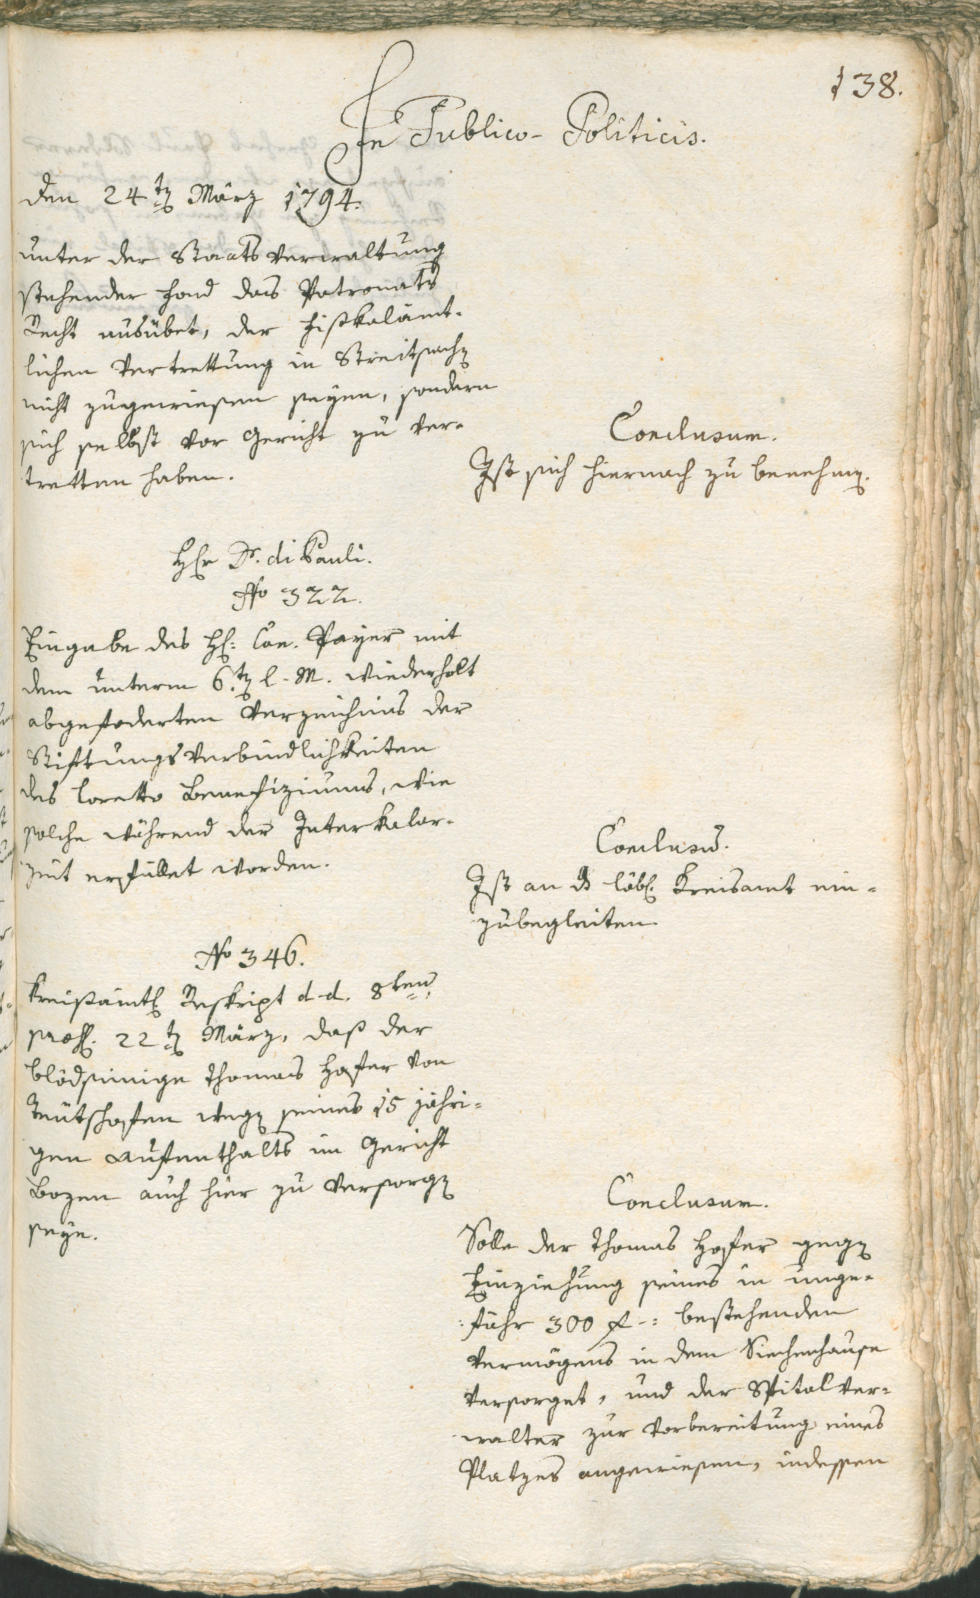 138.
In Publico-Politicis.
den 24ten März 1794.
unter der Staatsverwaltung
stehender Fond das Patronats
Recht ausübet, der Fißkalämt-
lichen Vertrettung in Streitsachen
nicht zugewiesen seyen, sondern
sich selbst vor Gericht zu ver-
tretten haben.
Conclusum.
Ist sich hiernach zu benehmen.
H. Dr. di Pauli.
No 322.
Eingabe des H: Con. Payer mit
dem unterm 6.ten l. M. wiederholt
abgefoderten Verzeichnis der
Stiftungsverbindlichkeiten
des Loretto Benefiziums, wie
solche während der Interkalar-
zeit erfüllet worden.
Conclusum.
Ist an das löbl. Kreisamt ein-
zubegleiten.
No 346.
Kreisämtl Reskript d-d. 8ten,
praes. 22ten März, daß der
blödsinnige Thomas Hofer von
Teütschofen wegen seines 15 jähri-
gen Aufenthalts im Gericht
Bozen auch hier zu versorgen
seye.
Conclusum.
Solle der Thomas Hofer gegen
Einziehung seines in unge-
fähr 300 f-: bestehenden
Vermögens in dem Siechenhause
versorget, und der Spitalver-
walter zur Vorbereitung eines
Platzes angewiesen, indessen